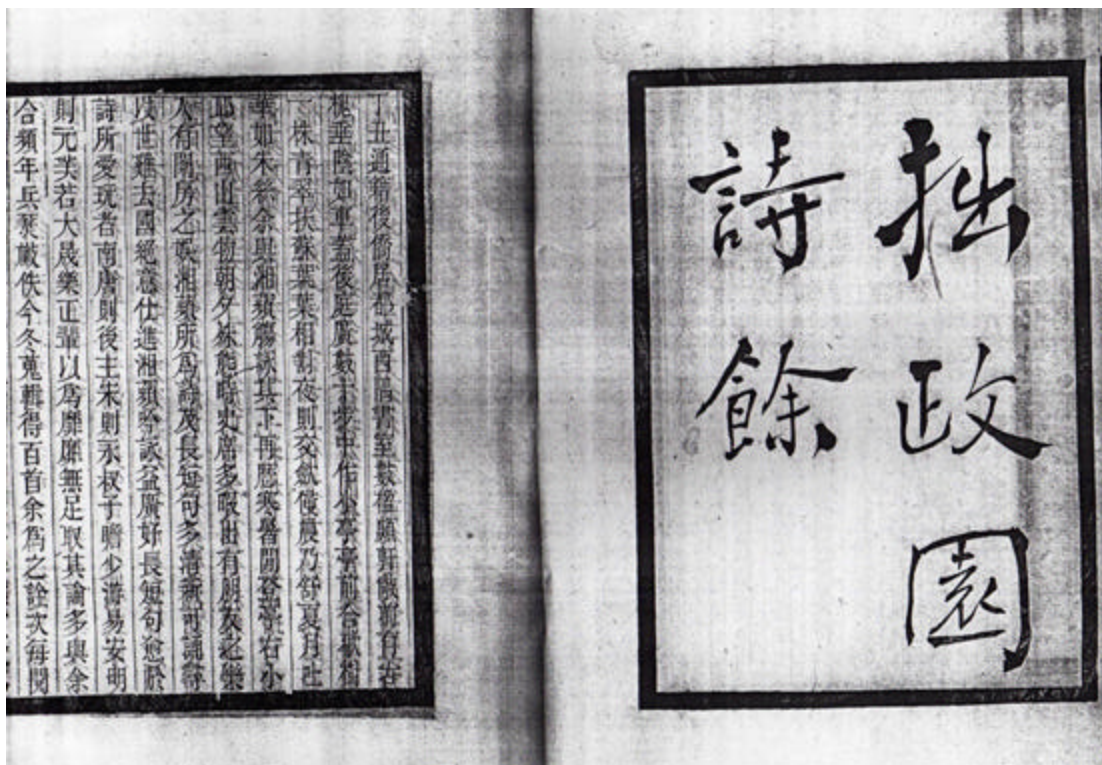 拙政園
詩餘
丁丑通籍後僑居都城西隅書室數楹頗軒敞前有古
槐垂陰如車蓋後庭廣數十步中作小亭亭前合歡樹
一株青翠扶蘇葉葉相對夜則交斂侵晨乃舒夏月吐
華如朱絲余與湘蘋觴詠其下再歷寒暑閒登亭右小
丘望西山雲物朝夕殊態時史席多暇出有朋友之樂
入有閨房之娛湘蘋所爲詩及長短句多清新可誦尋
以世難去國絕意仕進湘蘋吟詠益廣好長短句愈於
詩所愛玩者南唐則後主宋則永叔子瞻少游易安明
則元美若大晟樂正輩以爲靡靡無足取其論多與余
合頻年兵燹散佚今冬蒐輯得百首余爲之詮次每閱